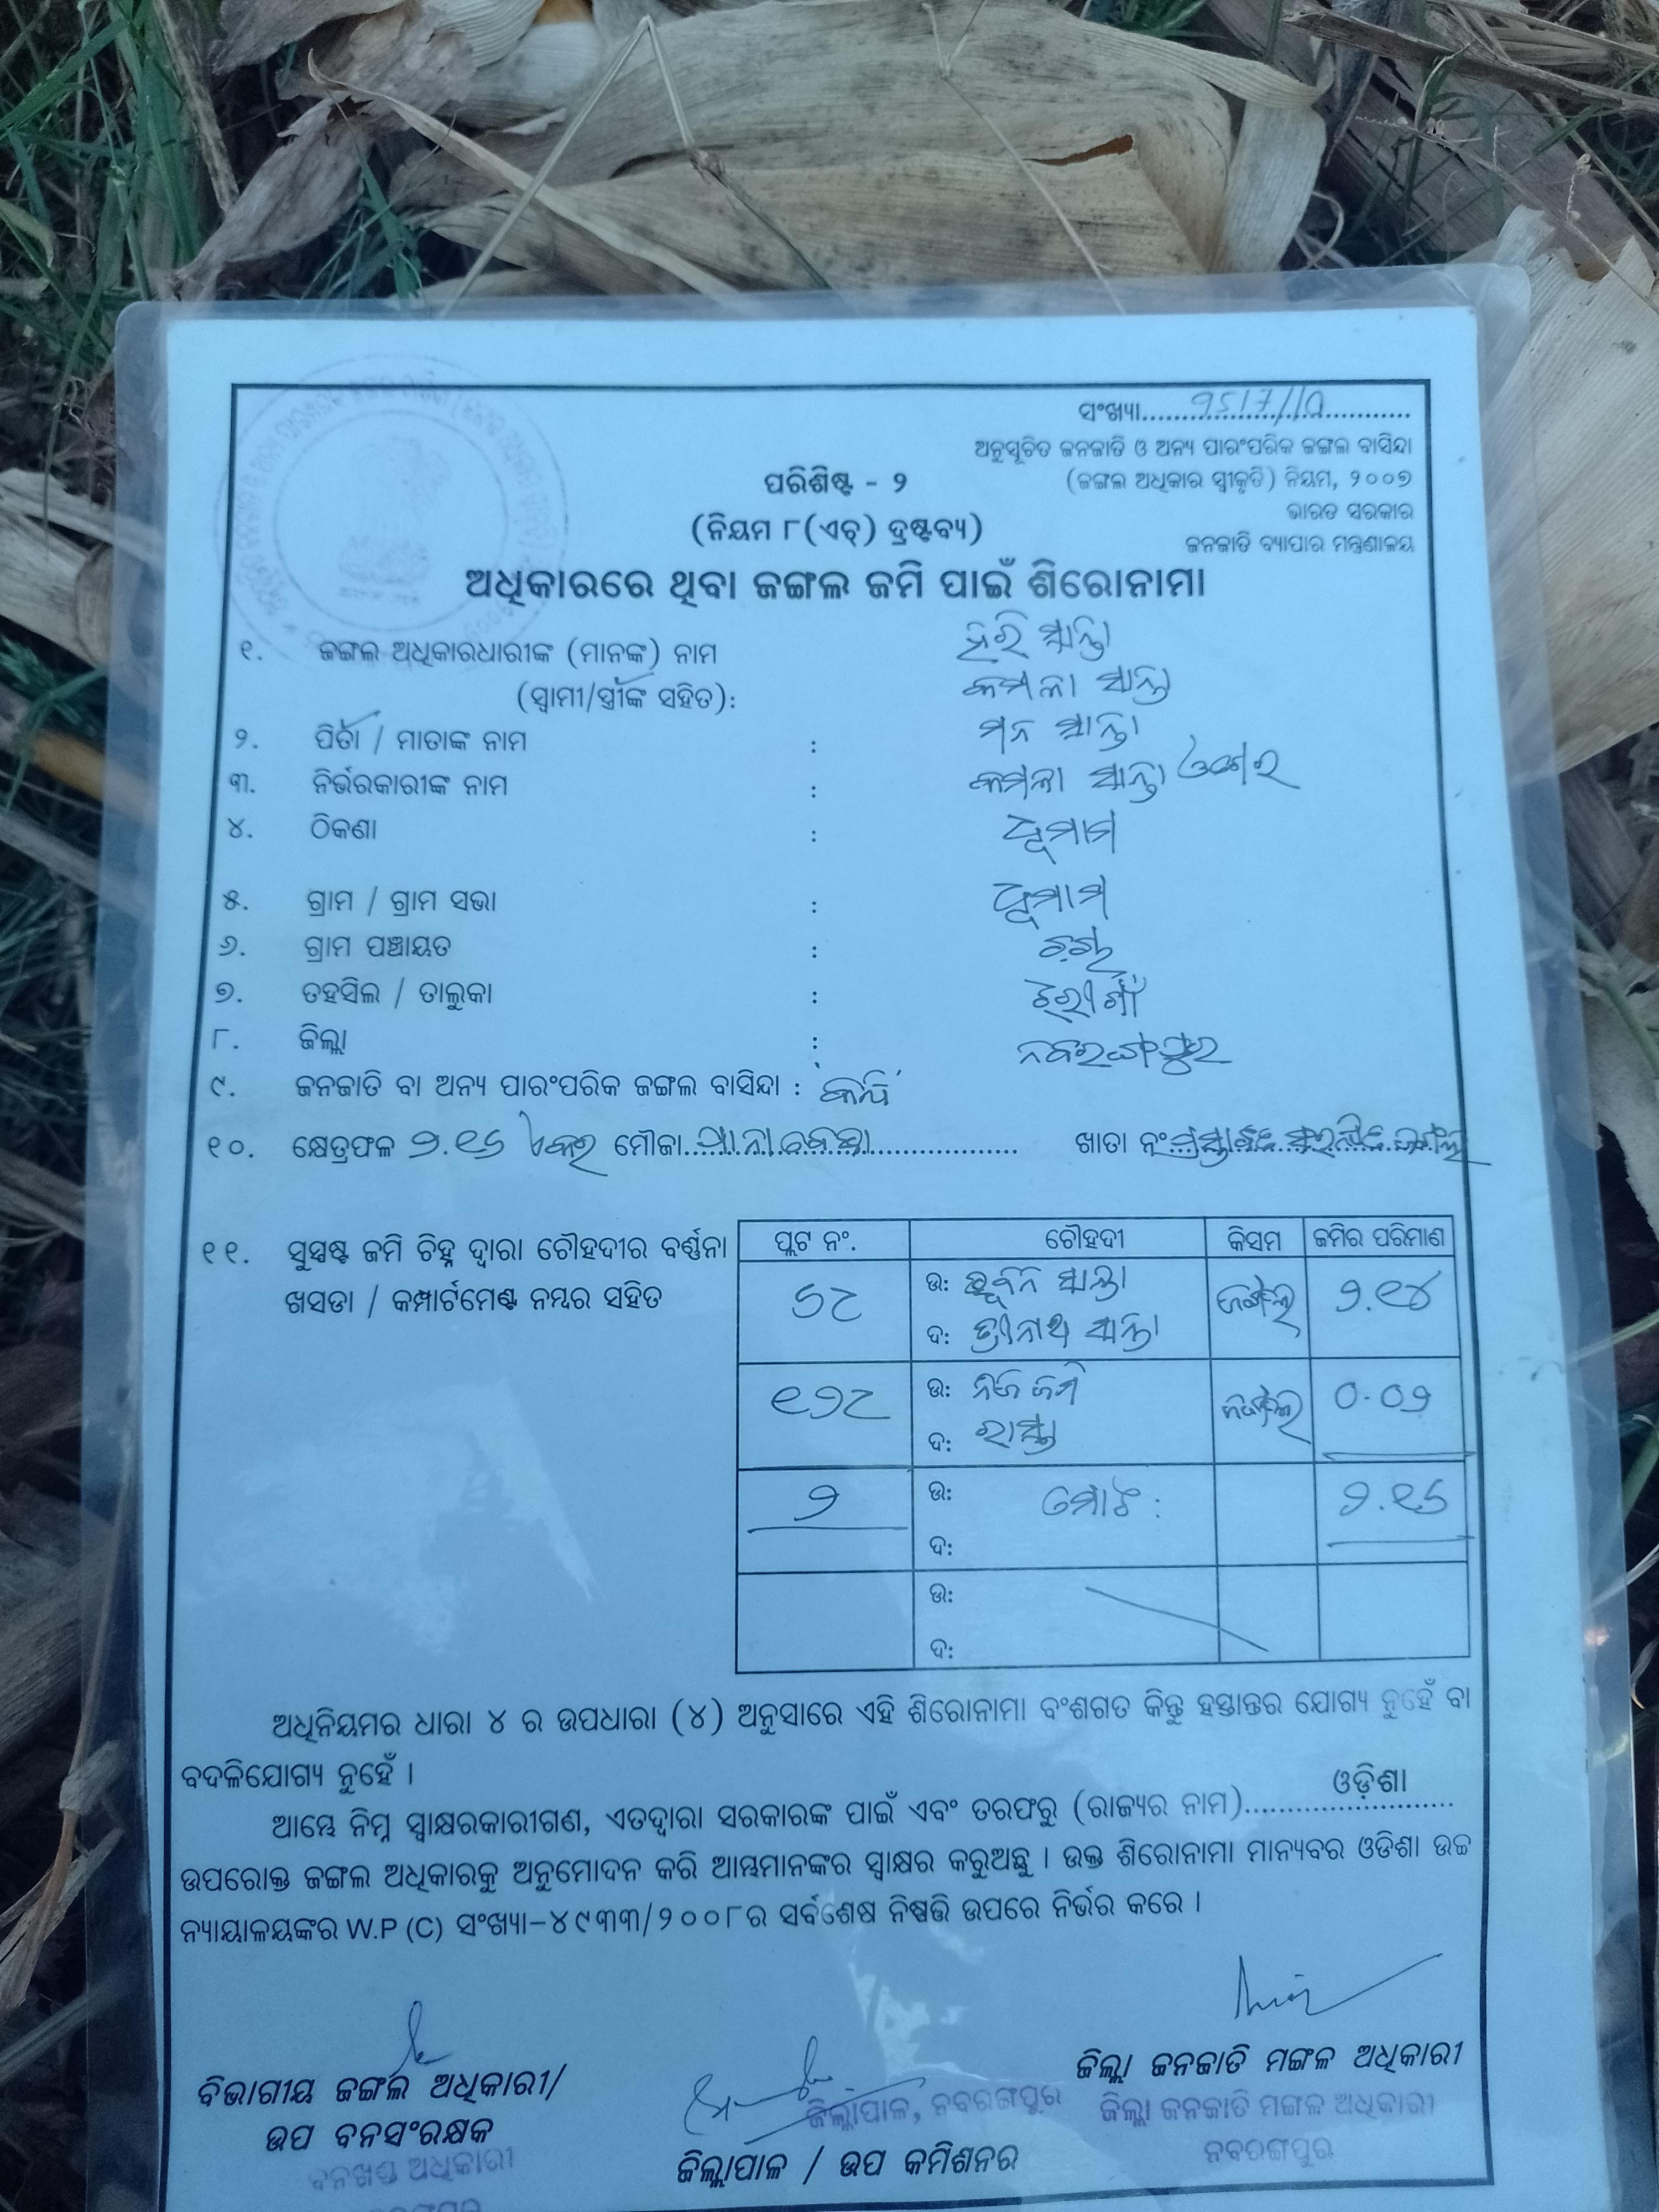 ସଂଖ୍ୟା
ଅନୁସୂଚିତ ଜନଜାତି ଓ ଅନ୍ୟ ପାରଂପରିକ ଜଙ୍ଗଲ ବାସିନ୍ଦା
(ଜଙ୍ଗଲ ଅଧିକାର ସ୍ୱୀକୃତି) ନିୟମ, ୨୦୦୭
ଭାରତ ସରକାର
ଜନଜାତି ବ୍ୟାପାର ମନ୍ତ୍ରଣାଳୟ
ପରିଶିଷ୍ଟ - ୨
(ନିୟମ ୮(ଏଚ୍) ଦ୍ରଷ୍ଟବ୍ୟ)
ଅଧିକାରରେ ଥିବା ଜଙ୍ଗଲ ଜମି ପାଇଁ ଶିରୋନାମା
୧. ଜଙ୍ଗଲ ଅଧିକାରଧାରୀଙ୍କ (ମାନଙ୍କ) ନାମ ହରି ସାନ୍ତା
(ସ୍ୱାମୀ/ସ୍ତ୍ରୀଙ୍କ ସହିତ): କମଳା ସାନ୍ତା
୨. ପିତା / ମାତାଙ୍କ ନାମ : ମନ ସାନ୍ତା
୩. ନିର୍ଭରକାରୀଙ୍କ ନାମ : କମଳା ସାନ୍ତା
୪. ଠିକଣା :
୫. ଗ୍ରାମ / ଗ୍ରାମ ସଭା :
୬. ଗ୍ରାମ ପଞ୍ଚାୟତ :
୭. ତହସିଲ / ତାଲୁକା :
୮. ଜିଲ୍ଲା : ନବରଙ୍ଗପୁର
୯. ଜନଜାତି ବା ଅନ୍ୟ ପାରଂପରିକ ଜଙ୍ଗଲ ବାସିନ୍ଦା :
୧୦. କ୍ଷେତ୍ରଫଳ ୨.୧୬ ଏକର ମୌଜା ଖାତା ନଂ
୧୧. ସୁସ୍ପଷ୍ଟ ଜମି ଚିହ୍ନ ଦ୍ୱାରା ଚୌହଦୀର ବର୍ଣ୍ଣନା
ଖସଡା / କମ୍ପାର୍ଟମେଣ୍ଟ ନମ୍ବର ସହିତ
ପ୍ଲଟ ନଂ. ଚୌହଦୀ କିସମ ଜମିର ପରିମାଣ
୬୮ ଉ: ସାନ୍ତା ଜଙ୍ଗଲ ୨.୧୪
ଦ: ତ୍ରୀନାଥ ସାନ୍ତା
୧୨୮ ଉ: ନିଜ ଜମି ଜଙ୍ଗଲ ୦.୦୨
ଦ: ରାସ୍ତା
୨ ଉ: ମୋଟ: ୨.୧୬
ଦ:
ଉ:
ଦ:
ଅଧିନିୟମର ଧାରା ୪ ର ଉପଧାରା (୪) ଅନୁସାରେ ଏହି ଶିରୋନାମା ବଂଶଗତ କିନ୍ତୁ ହସ୍ତାନ୍ତର ଯୋଗ୍ୟ ନୁହେଁ ବା
ବଦଳିଯୋଗ୍ୟ ନୁହେଁ ।
ଆମ୍ଭେ ନିମ୍ନ ସ୍ୱାକ୍ଷରକାରୀଗଣ, ଏତଦ୍ୱାରା ସରକାରଙ୍କ ପାଇଁ ଏବଂ ତରଫରୁ (ରାଜ୍ୟର ନାମ) ଓଡ଼ିଶା
ଉପରୋକ୍ତ ଜଙ୍ଗଲ ଅଧିକାରକୁ ଅନୁମୋଦନ କରି ଆମ୍ଭମାନଙ୍କର ସ୍ୱାକ୍ଷର କରୁଅଛୁ । ଉକ୍ତ ଶିରୋନାମା ମାନ୍ୟବର ଓଡିଶା ଉଚ୍ଚ
ନ୍ୟାୟାଳୟଙ୍କର W.P (C) ସଂଖ୍ୟା-୪୯୩୩/୨୦୦୮ର ସର୍ବଶେଷ ନିଷ୍ପତ୍ତି ଉପରେ ନିର୍ଭର କରେ ।
ବିଭାଗୀୟ ଜଙ୍ଗଲ ଅଧିକାରୀ/
ଉପ ବନସଂରକ୍ଷକ
ବନଖଣ୍ଡ ଅଧିକାରୀ
ଜିଲ୍ଲାପାଳ, ନବରଙ୍ଗପୁର
ଜିଲ୍ଲାପାଳ / ଉପ କମିଶନର
ଜିଲ୍ଲା ଜନଜାତି ମଙ୍ଗଳ ଅଧିକାରୀ
ଜିଲ୍ଲା ଜନଜାତି ମଙ୍ଗଳ ଅଧିକାରୀ
ନବରଙ୍ଗପୁର